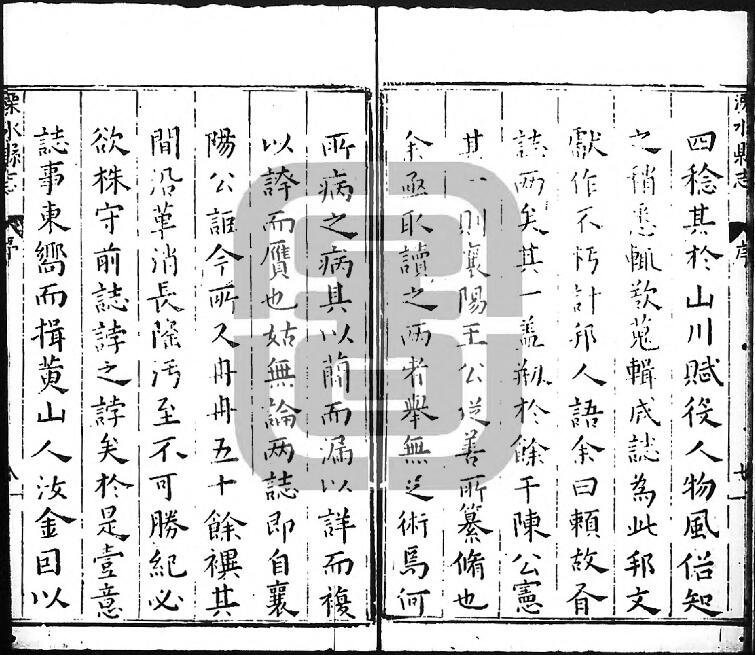 溧水縣志 序
四稔其於山川賦役人物風俗知
之稍悉輒欲蒐輯成誌為此邦文
獻作不朽計邦人語余曰賴故有
誌两矣其一蓋刱於餘干陳公憲
其一則襄陽王公從善所纂脩也
余亟取讀之两者舉無足術焉何
所病之病其以簡而漏以詳而複
以誇而贗也姑無論两誌即自襄
陽公詎今所又冉冉五十餘禩其
間沿革消長隆污至不可勝紀必
欲株守前誌誖之誖矣於是壹意
誌事東嚮而揖黄山人汝金因以
溧水縣志 序